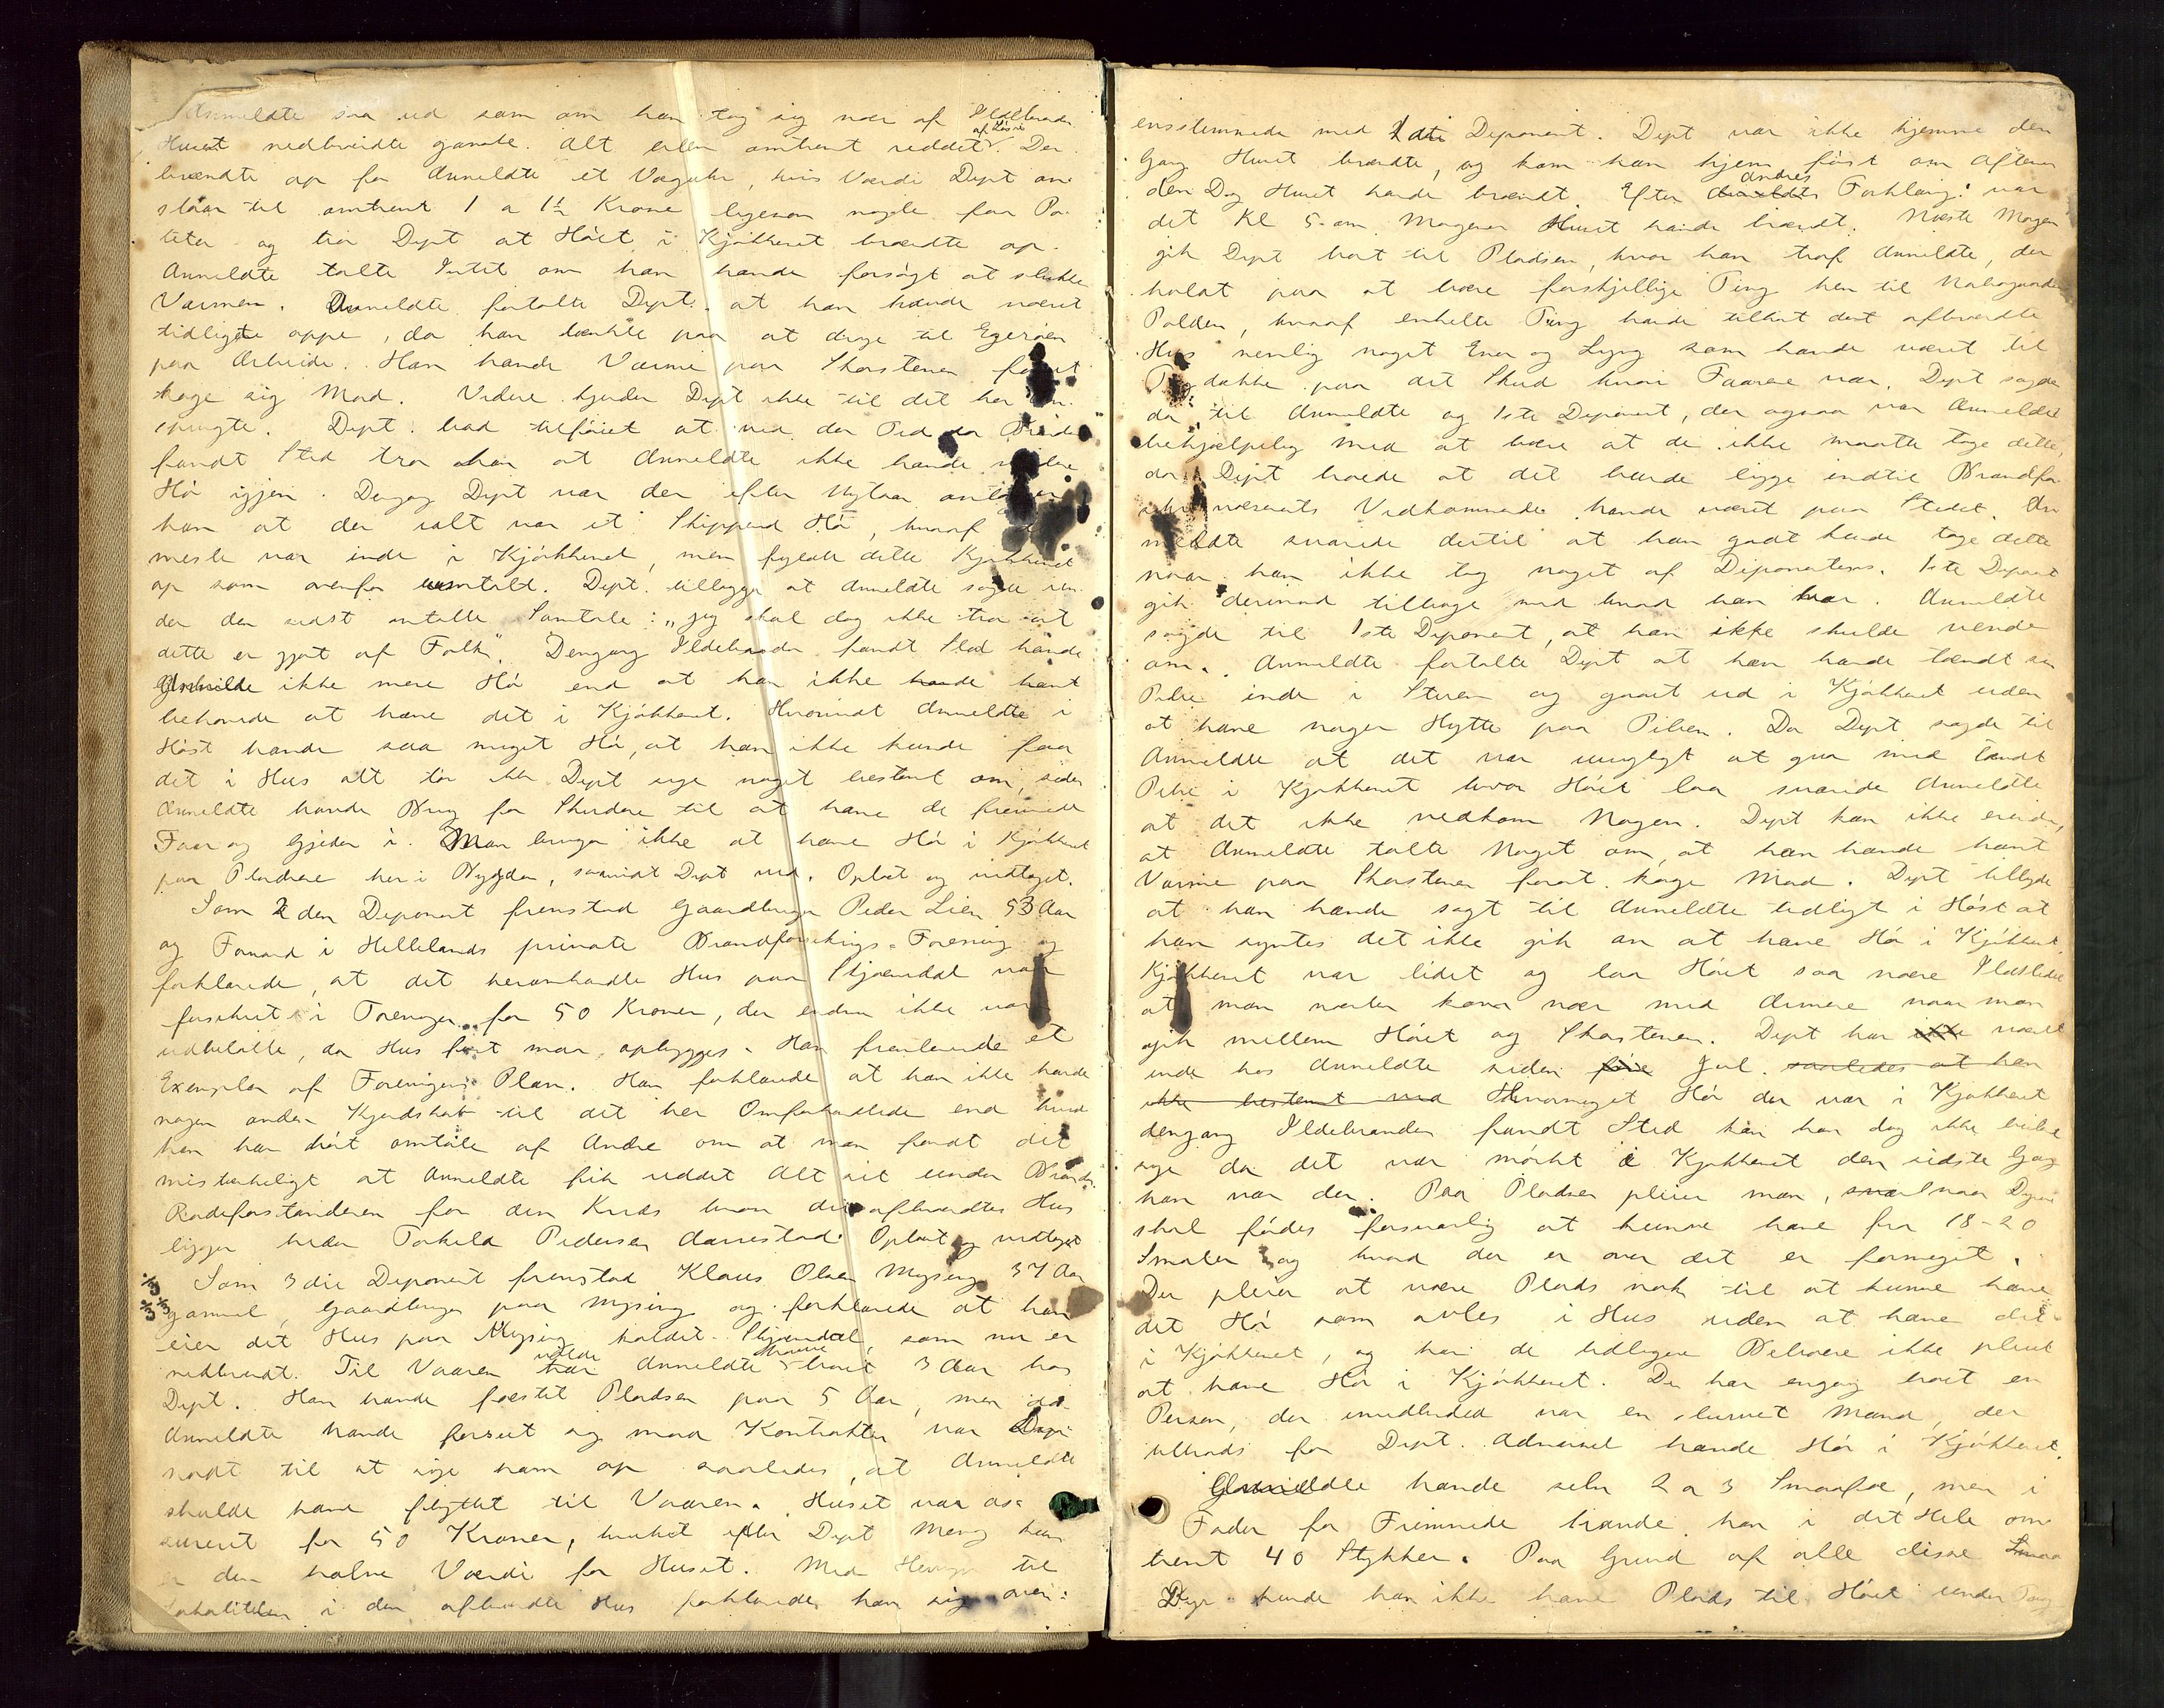 Anmeldte saa ud som om han tog sig nær af Ildebranden
Huset nedbrændte ganske. Alt ellers omtrent reddet af Løsøre. Der
brændte op for Anmeldte et Væguhr, hvis Værdi Dept an-
slaar til omtrent 1 a 1½ Krone ligesom nogle faa Po-
teter og tror Dept at Høiet i Kjøkkenet brændte op.
Anmeldte talte Intet om han havde forsøgt at slukke
Varmen. Anmeldte fortalte Dept. at han havde været
tidligste oppe, da han tænkte paa at drage til Egerøen
paa Arbeide. Han havde Varme paa Skorstenen for at
koge sig Mad. Videre kjender Dept ikke til det her
spurgte. Dept. bad tilføiet at ved den Tid da Branden
fandt Sted tror han at Anmeldte ikke havde videre
Hø igjen. Dengang Dept var der efter Nytaar antager
han at der ialt var et Skippund Hø, hvoraf det
meste var inde i Kjøkkenet, men fyldte dette Kjøkkenet
op som ovenfor omtalt. Dept. tillægger at Anmeldte sagde un-
der den sidst omtalte Samtale: "jeg skal dog ikke tro at
dette er gjort af Folk". Dengang Ildebranden fandt Sted havde
Anmeldte ikke mere Hø end at han ikke havde havt
behovede at have det i Kjøkkenet. Hvorvidt Anmeldte i
Høst havde saa meget Hø, at han ikke kunde faa
det i Hus alt tør ikke Dept sige noget bestemt om, siden
Anmeldte havde Brug for Skurdene til at have de fremmede
Faar og Gjeder i. Man bruger ikke at have Hø i Kjøkkenet
paa Pladsene her i Bygden, saavidt Dept ved. Oplæst og vedtaget.
Som 2den Deponent fremstod Gaardbruger Peder Lien 53 Aar
og Formand i Hellelands private Brandforsikrings-Forening og
forklarede, at det heromhandlede Hus paa Skjævdal var
forsikret i Foreningen for 50 Kroner, der endnu ikke var
udbetalte, da Hus først maa opbygges. Han fremlagde et
Exemplar af Foreningens Plan. Han forklarede at han ikke havde
nogen anden Kjendskab til det her Omforhandlede end hvad
han har hørt omtale af Andre om at man fandt det
mistænkeligt at Anmeldte fik reddet Alt sit under Branden.
Rodeforstanderen for den Kreds hvor det afbrændte Hus
ligger heder Torkild Pedersen Aarrestad. Oplæst og vedtaget
Som 3die Deponent fremstod Klaus Olsen Mysing 37 Aar
gammel, Gaardbruger paa Mysing og forklarede at han
eier det Hus paa Mysing kaldet Skjævdal, som nu er
nedbrændt. Til Vaaren vilde har Anmeldte have boet 3 Aar hos
Dept. Han havde fæstet Pladsen paa 5 Aar, men da
Anmeldte havde forseet sig mod Kontrakten var Dept
nødt til at sige ham op saaledes, at Anmeldte
skulde have flyttet til Vaaren. Huset var as-
sureret for 50 Kroner, hvilket efter Dept Mening kun
er den halve Værdi for Huset. Med Hensyn til
Lokaliteten i den afbrændte Hus forklarede han sig over-
ensstemmende med 1ste Deponent. Dept var ikke hjemme den
Gang Huset brændte, og kom han hjem først om Aftenen
den Dag Huset havde brændt. Efter Anmeldtes Andres Forklaring var
det Kl 5 om Morgenen Huset havde brændt. Næste Morgen
gik Dept bort til Pladsen, hvor han traf Anmeldte, der
holdt paa at bære forskjellige Ting hen til Nabogaarden
Polden, hvoraf enkelte Ting havde tilhørt det afbrændte
Hus nemlig noget Ener og Lyng som havde været til
Tagdække paa det Skud hvori Faarene var. Dept sagde
da til Anmeldte og 1ste Deponent, der ogsaa var Anmeldte
behjælpelig med at bære at de ikke maatte tage dette,
da Dept troede at det burde ligge indtil Brandfor-
sikringsvæsenets Vedkommende havde været paa Stedet. An-
meldte svarede dertil at han godt kunde tage dette
naar han ikke tog noget af Deponentens. 1ste Deponent
gik dermed tilbage med hvad han bar. Anmeldte
sagde til 1ste Deponent, at han ikke skulde vende
om. Anmeldte fortalte Dept at han havde tændt sin
Pibe inde i Stuen og gaaet ud i Kjøkkenet uden
at have nogen Hytte paa Piben. Da Dept sagde til
Anmeldte at det var umuligt at gaa med tændt
Pibe i Kjøkkenet hvor Høiet laa svarede Anmeldte
at det ikke vedkom Nogen. Dept kan ikke erindre,
at Anmeldte talte Noget om, at han havde havt
Varme paa Skorstenen forat koge Mad. Dept tilføiede
at han havde sagt til Anmeldte tidligt i Høst at
han syntes det ikke gik an at have Hø i Kjøkkenet.
Kjøkkenet var lidet og laa Høiet saa nære Ildstedet
at man næsten kom nær med Armene naar man
gik mellem Høiet og Skorstenen. Dept har ikke været
inde hos Anmeldte siden før Jul. saaledes at han
ikke bestemt ved Hvormeget Hø der var i Kjøkkenet
dengang Ildebranden fandt Sted kan han dog ikke
sige da det var mørkt i Kjøkkenet den sidste Gang
han var der. Paa Pladsen pleier man, naar Dyrene
skal fødes forsvarlig at kunne have fra 18-20
Smaler og hvad der er over det er formeget.
Der pleier at være Plads nok til at kunne have
det Hø som avles i Hus uden at have det
i Kjøkkenet, og har de tidligere Beboere ikke pleiet
at have Hø i Kjøkkenet. Der har engang boet en
Person, der imidlertid var en slurvet Mand, der
tiltrods for Dept. Advarsel havde Hø i Kjøkkenet.
Anmeldte havde selv 2 a 3 Smaafæ, men i
Foder for Fremmede havde han i det Hele om-
trent 40 Stykker. Paa Grund af alle disse Smaa
Dyr kunde han ikke have Plads til Høiet under Tag